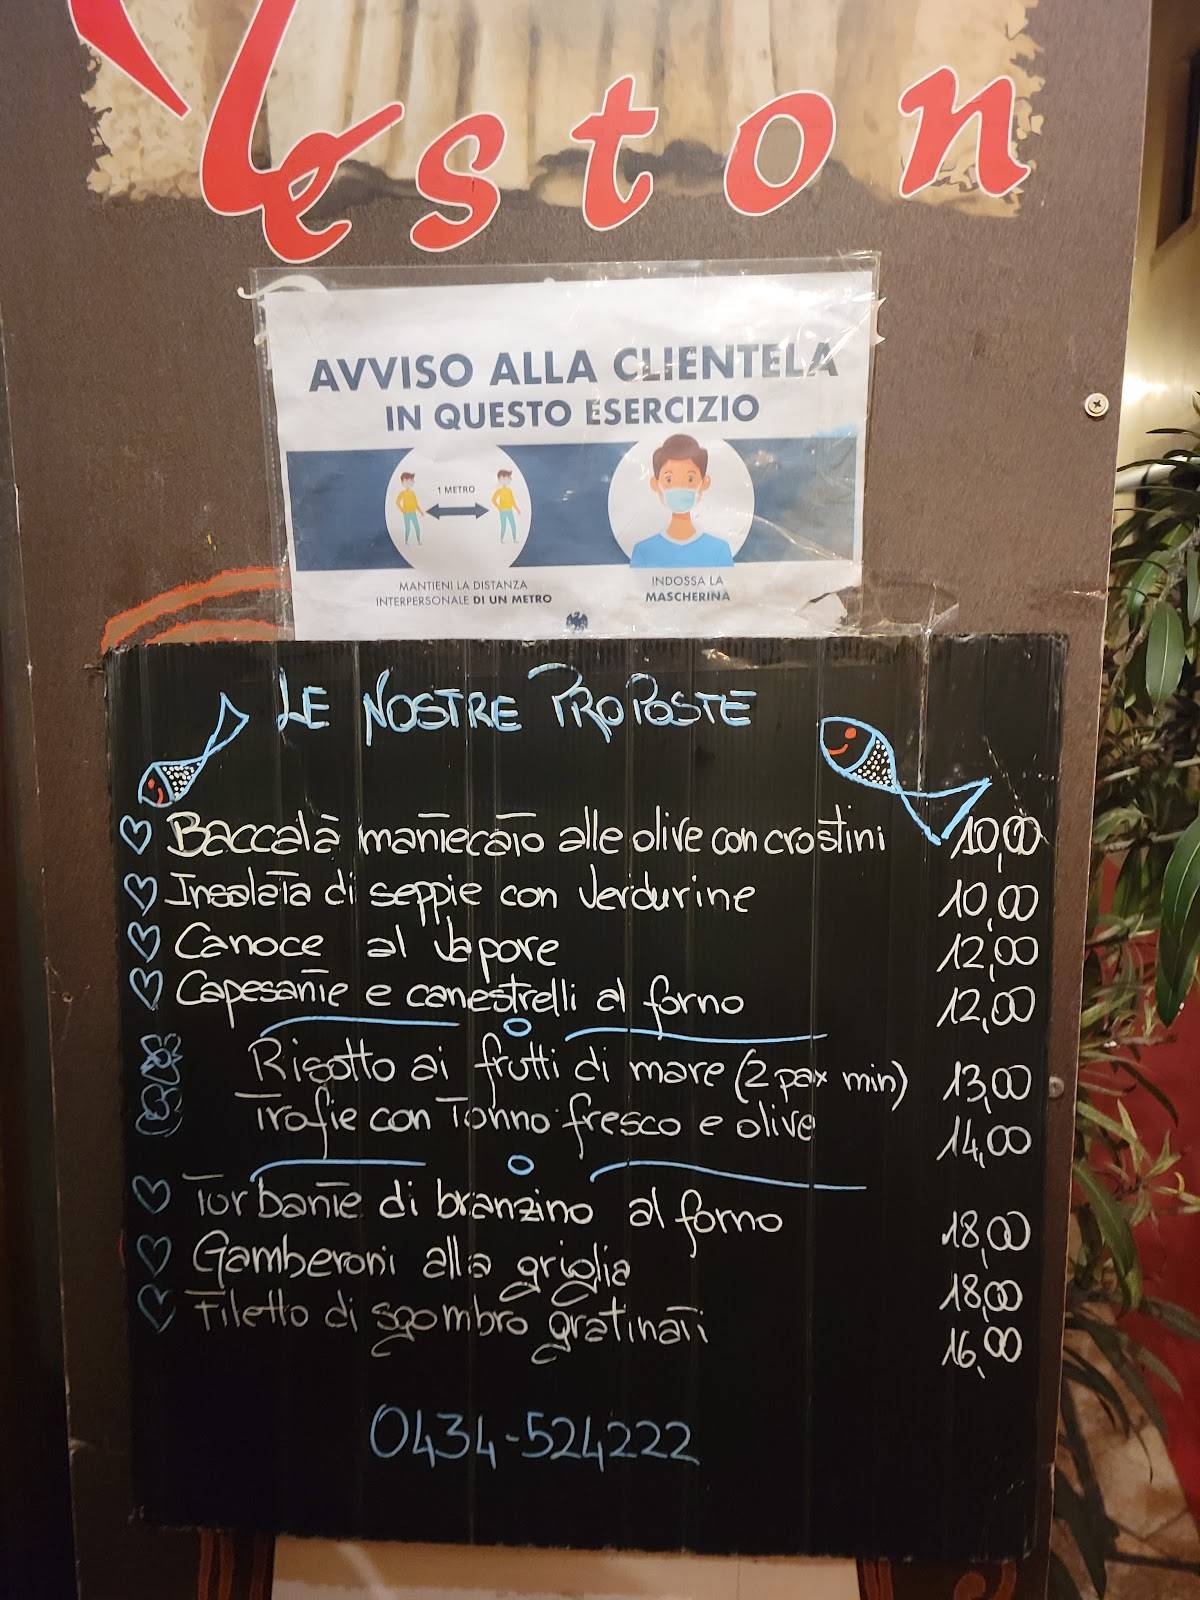 Yeston
AVVISO ALLA CLIENTELA
IN QUESTO ESERCIZIO
1 METRO
MANTIENI LA DISTANZA
INTERPERSONALE DI UN METRO
INDOSSA LA
MASCHERINA
LE NOSTRE PROPOSTE
Baccalà mantecato alle olive con crostini 10,00
Insalata di seppie con verdurine 10,00
Canoce al vapore 12,00
Capesante e canestrelli al forno 12,00
Risotto ai frutti di mare (2 pax min) 13,00
Trofie con Tonno fresco e olive 14,00
Torbante di branzino al forno 18,00
Gamberoni alla griglia 18,00
Filetto di sgombro gratinati 16,00
0434-524222